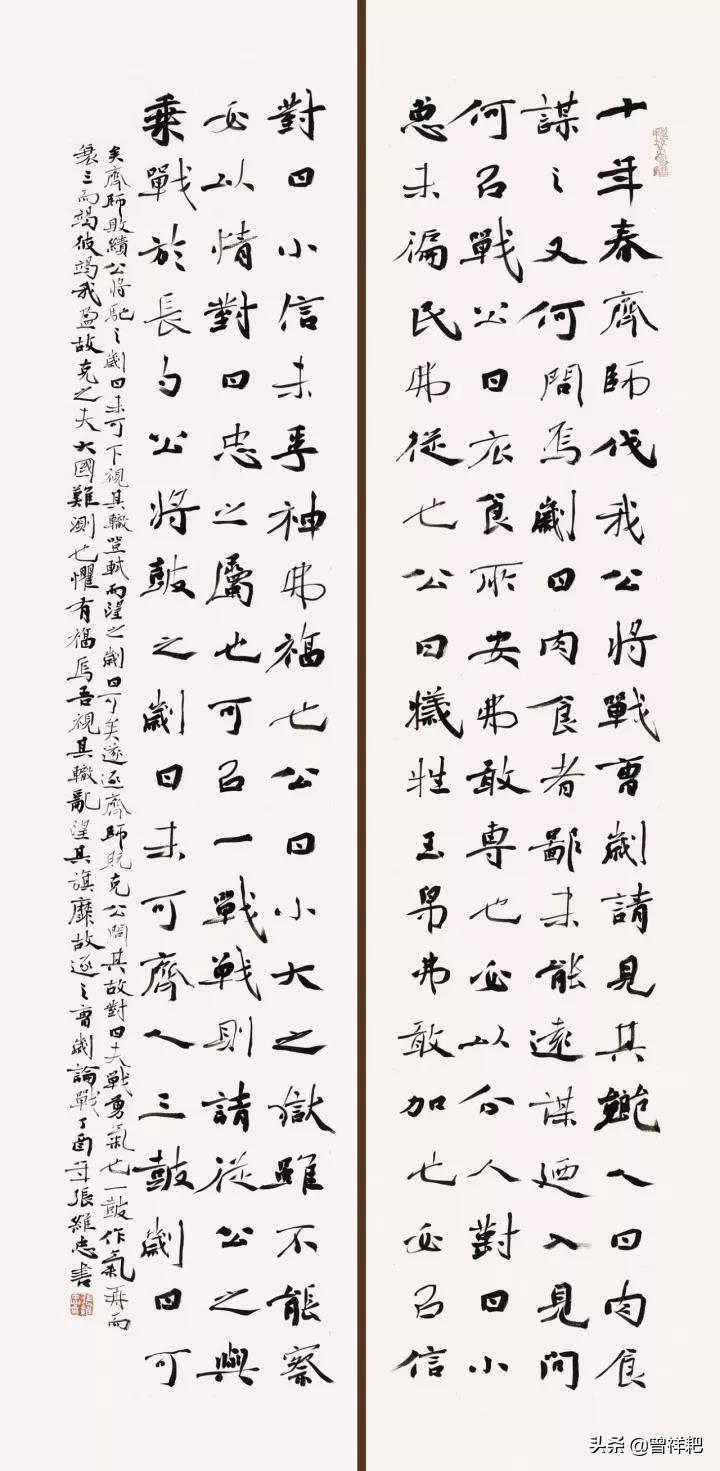 十年春齊師伐我公將戰曹劌請見其鄉人曰肉食
謀之又何間焉劌曰肉食者鄙未能遠謀迺入見問
何以戰公曰衣食所安弗敢專也必以分人對曰小
惠未徧民弗從也公曰犧牲玉帛弗敢加也必以信
對曰小信未孚神弗福也公曰小大之獄雖不能察
必以情對曰忠之屬也可以一戰戰則請從公之與
乘戰於長勺公將鼓之劌曰未可齊人三鼓劌曰可
矣齊師敗績公將馳之劌曰未可下視其轍登軾而望之劌曰可矣遂逐齊師既克公問其故對曰夫戰勇氣也一鼓作氣再而
衰三而竭彼竭我盈故克之夫大國難測也懼有福焉吾視其轍亂望其旗靡故逐之曹劌論戰丁酉年張維忠書
头条 @曾祥耙